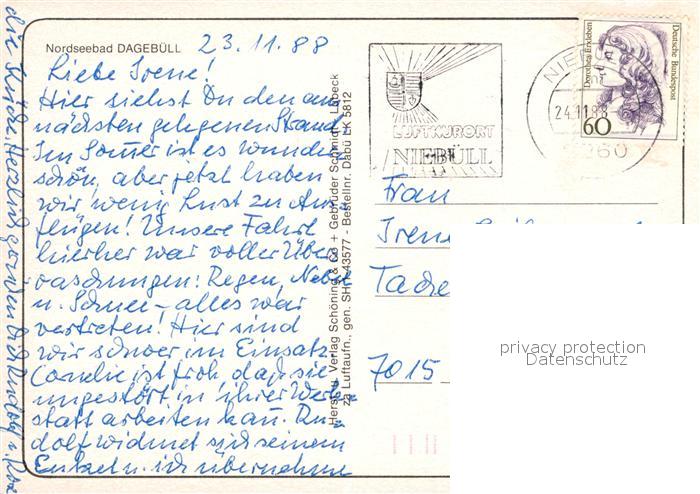 Nordseebad DAGEBÜLL
23.11.88
Liebe Irene!
Hier siehst Du den am
nächsten gelegenen Strand.
Im Som̅er ist es wunder
schön, aber jetzt haben
wir wenig Lust zu Aus-
flügen! Unsere Fahrt
hierher war voller Über
raschungen: Regen, Nebel
u. Schnee – alles war
vertreten! Hier sind
wir schwer im Einsatz.
Cornelie ist froh, daß sie
ungestört in ihrer Werk-
statt arbeiten kan̅. Ru-
dolf widmet sich seinem
Enkel u. ich übernehme
die Küche. Herzlich grüßen Dich Rudolf u.
Herst. u. Verlag Schöning & Co + Gebrüder Schmidt, Lübeck
za Luftaufn., gen. SH 43577 - Bestellnr. Dabü LK 5812
LUFTKURORT
NIEBÜLL
NIEBÜLL
24.11.88
2260
Dorothea Erxleben
Deutsche Bundespost
60
Frau
Irene
7015
privacy protection
Datenschutz